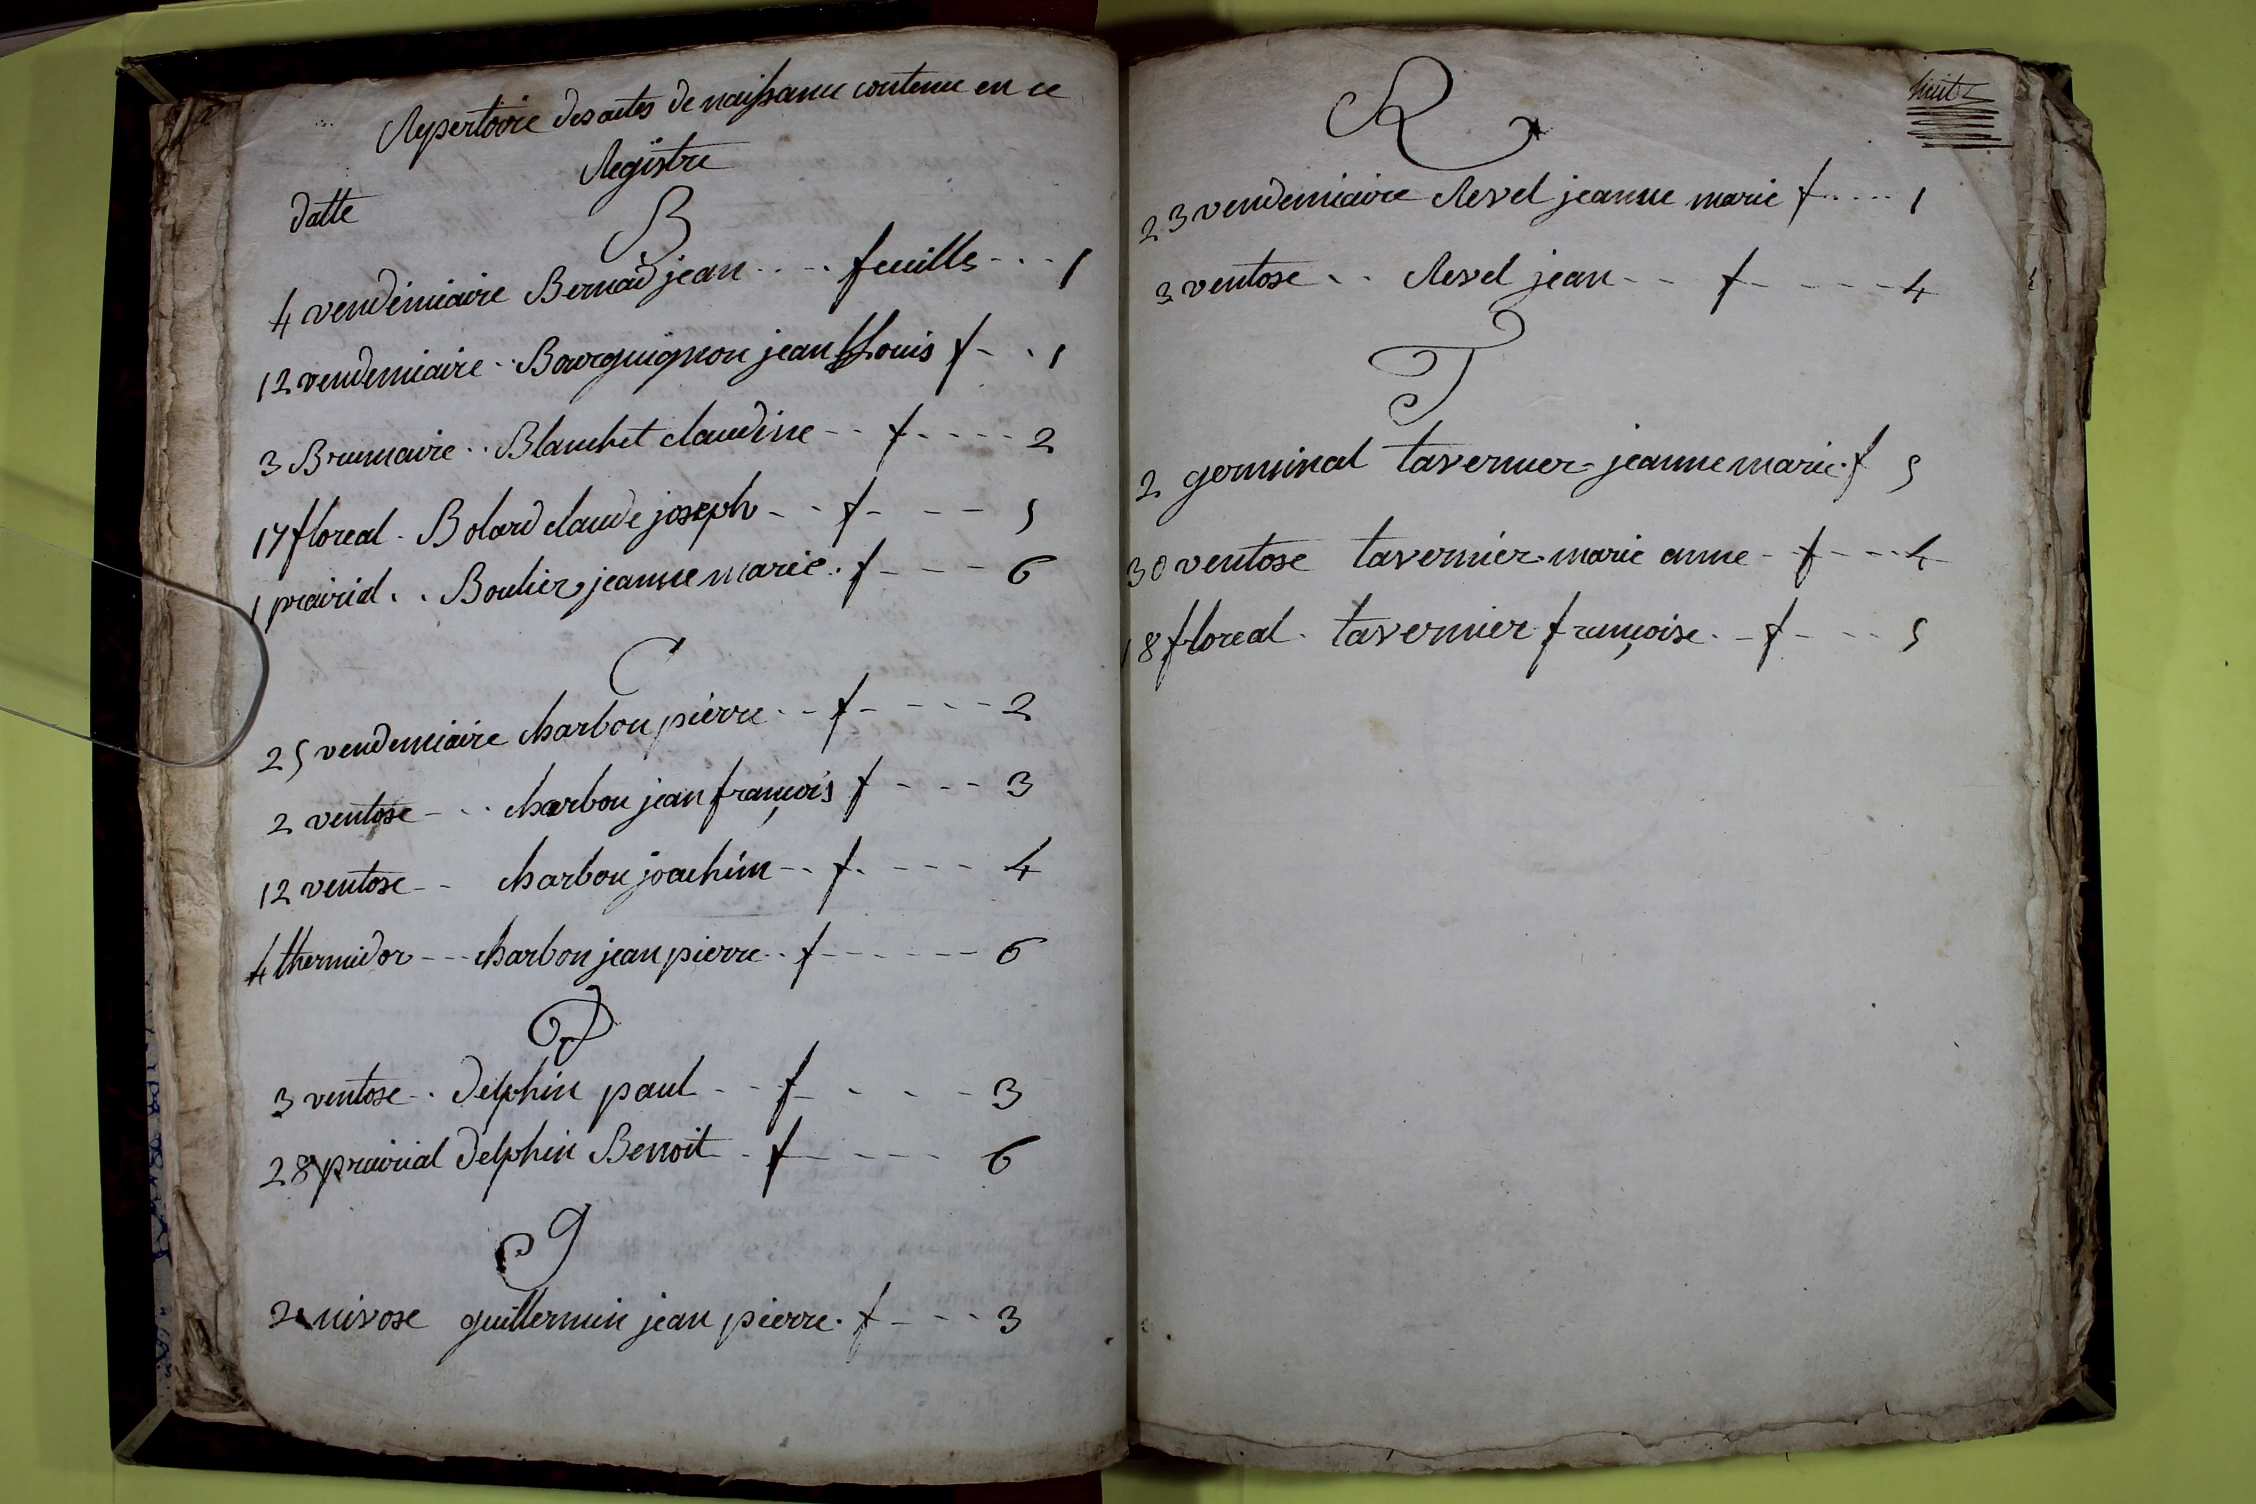 Repertoire des actes de naissance contenue en ce
Registre
datte
B
4 vendémiaire Bernad jean .... feuille ... 1
12 vendemiaire .. Bourguignon jean Louis f - . 1
3 Brumaire .. Blanchet claudine -- f .---- 2
17 floreal . Bolard claude joseph - -f - -- 5
1 prairial . . Boulier jeanne marie . f --- 6
C
25 vendemiaire charbon pierre .. - f ----- 2
2 ventose - .. charbon jean françois f --- 3
12 ventose -- charbon joachim -. f . --- 4
4 thermidor --- charbon jean pierre .. f ------ 6
D
3 ventose - . delphin paul - - f - - - - 3
28 prairial delphin Benoit . f ---- 6
G
2 nivose guillermin jean pierre . f --- 3
huit
R
23 vendemiaire Revel jeanne marie f .... 1
3 ventose . . Revel jean -- f ----- 4
T
2 germinal tavernier jeanne marie . f 5
30 ventose tavernier marie anne - f --- 4
18 floreal . tavernier françoise . - f - -- 5